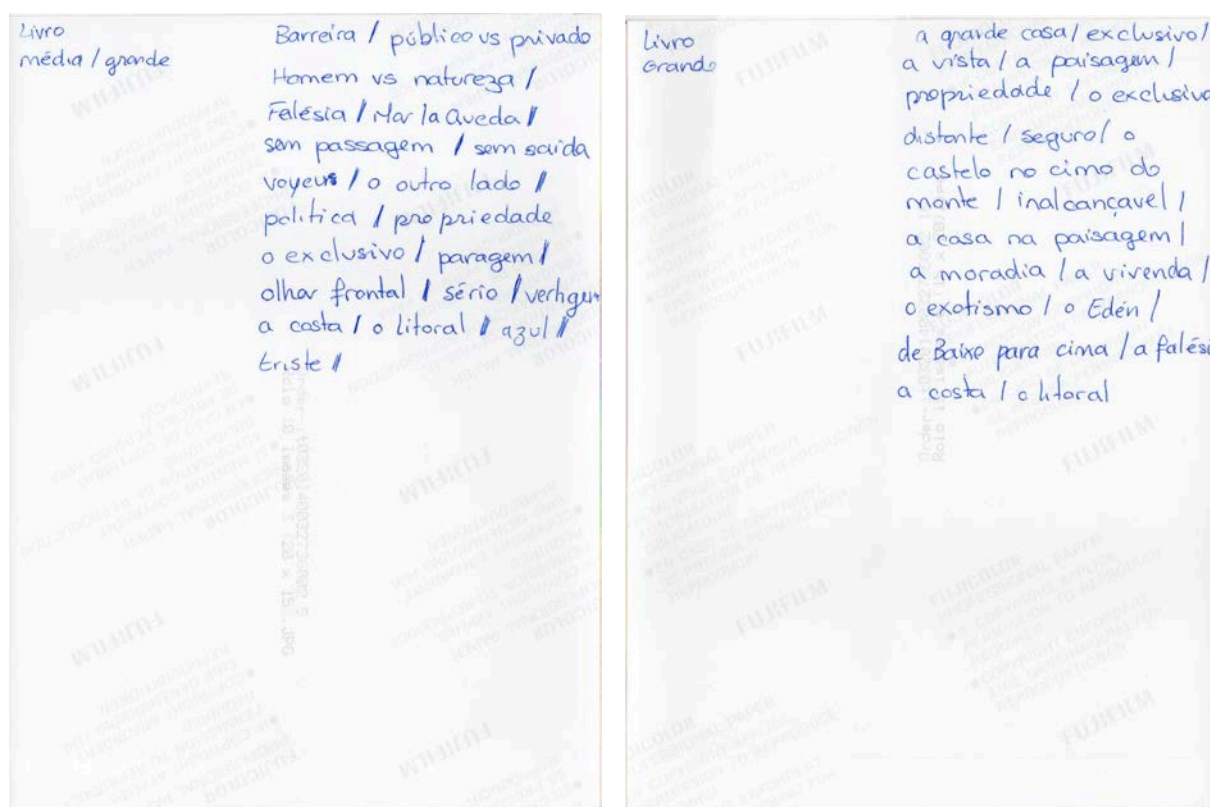 Livro
média / grande
Barreira / público vs privado
Homem vs natureza /
Falésia / Mar / a Queda /
sem passagem / sem saida
voyeurs / o outro lado /
politica / propriedade
o exclusivo / paragem /
olhar frontal / sério / vertigem
a costa / o litoral / azul /
triste /
Livro
Grande
a grande casa / exclusivo /
a vista / a paisagem /
propriedade / o exclusivo
distante / seguro / o
castelo no cimo do
monte / inalcançavel /
a casa na paisagem /
a moradia / a vivenda /
o exotismo / o Edén /
de Baixo para cima / a falési
a costa / o litoral
FUJIFILM
FUJIFILM
FUJIFILM
FUJIFILM
FUJIFILM
FUJIFILM
FUJIFILM
FUJIFILM
FUJIFILM
FUJIFILM